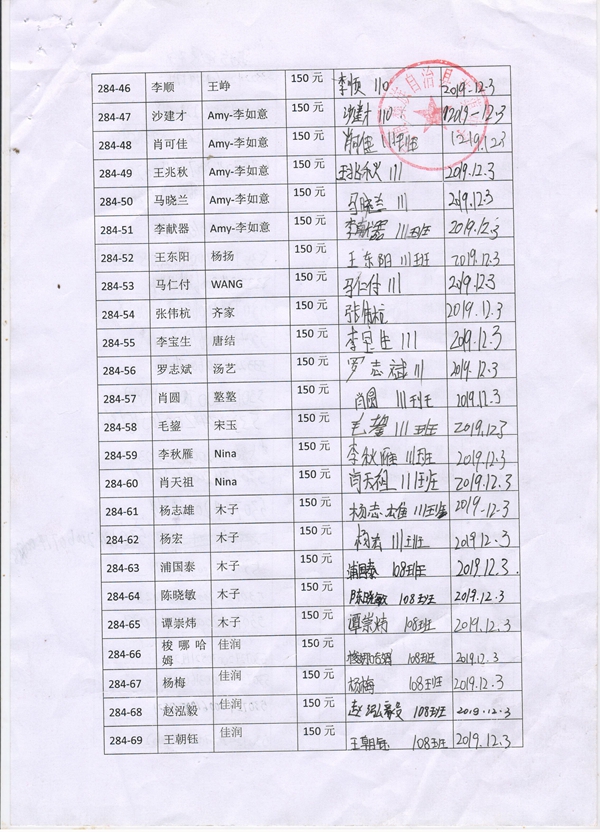 自治县
284-46 李顺 王峥 150 元 李顺 110 2019.12.3
284-47 沙建才 Amy-李如意 150 元 沙建才 110 2019-12-3
284-48 肖可佳 Amy-李如意 150 元 肖可佳 111班 1219.12.3
284-49 王兆秋 Amy-李如意 150 元 王兆秋 111 2019.12.3
284-50 马晓兰 Amy-李如意 150 元 马晓兰 111 2019.12.3
284-51 李献器 Amy-李如意 150 元 李献器 111班 2019.12.3
284-52 王东阳 杨扬 150 元 王东阳 111班 2019.12.3
284-53 马仁付 WANG 150 元 马仁付 111 2019.12.3
284-54 张伟杭 齐家 150 元 张伟杭 2019.12.3
284-55 李宝生 唐结 150 元 李宝生 111 2019.12.3
284-56 罗志斌 汤艺 150 元 罗志斌 111 2019.12.3
284-57 肖圆 150 元 肖圆 111班 2019.12.3
284-58 毛鋆 宋玉 150 元 毛 111班 2019.12.3
284-59 李秋雁 Nina 150 元 李秋雁 111班 2019.12.3
284-60 肖天祖 Nina 150 元 肖天祖 111班 2019.12.3
284-61 杨志雄 木子 150 元 杨志雄 111班 2019-12-3
284-62 杨宏 木子 150 元 杨宏 111班 2019.12.3
284-63 浦国泰 木子 150 元 浦国泰 108班 2019.12.3.
284-64 陈晓敏 木子 150 元 陈晓敏 108班 2019.12.3
284-65 谭崇炜 木子 150 元 谭崇炜 108班 2019.12.3
284-66 梭哪哈姆 佳润 150 元 梭哪哈姆 108班 2019.12.3
284-67 杨梅 佳润 150 元 杨梅 108班 2019.12.3
284-68 赵泓毅 佳润 150 元 赵泓毅 108班 2019.12.3
284-69 王朝钰 佳润 150 元 王朝钰 108班 2019.12.3